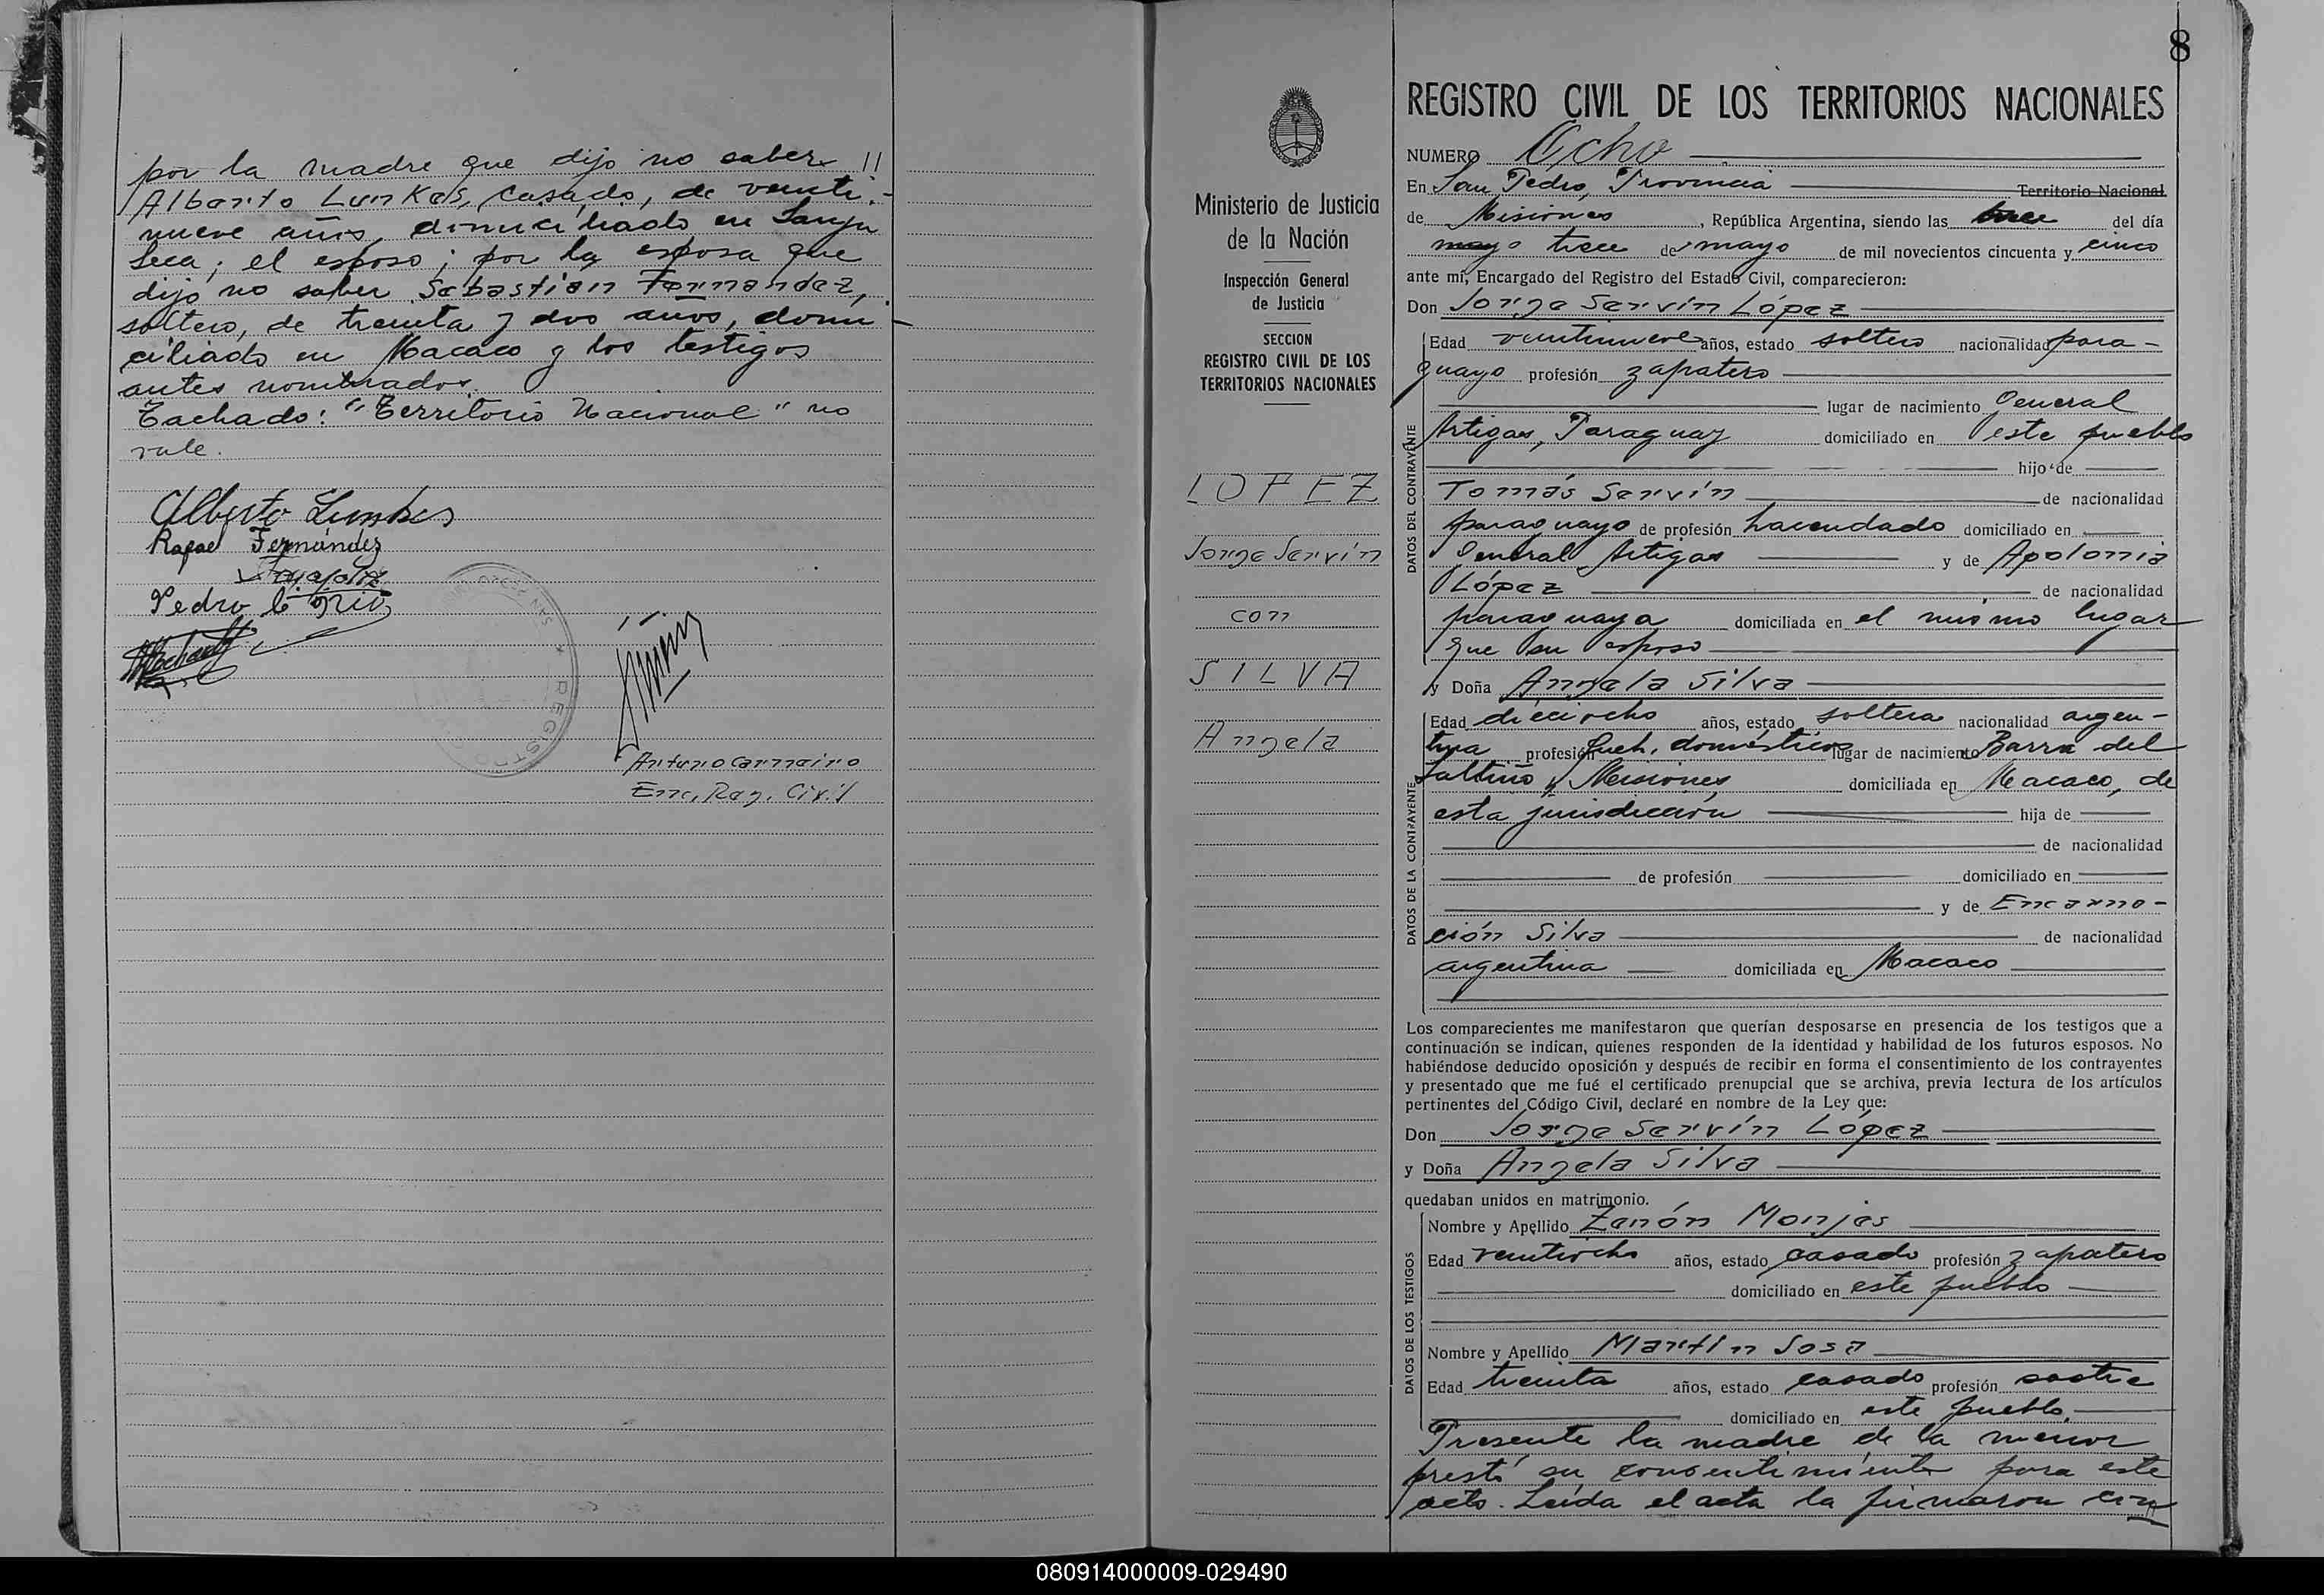 por la madre que dijo no saber
Alberto Lunkes, casado, de veinti-
nueve años, domiciliado en Sanja
Seca; el esposo; por la esposa que
dijo no saber Sebastián Fernández,
soltero, de treinta y dos años, domi-
ciliado en Macaco y los testigos
antes nombrados.
Tachado: "Territorio Nacional" no
vale.
Alberto Lunkes
Rafael Fernández
Pedro
REGISTRO
Arturo Carneiro
Enc. Reg. Civil
8
Ministerio de Justicia
de la Nación
Inspección General
de Justicia
SECCION
REGISTRO CIVIL DE LOS
TERRITORIOS NACIONALES
LOPEZ
Jorge Servín
con
SILVA
Angela
REGISTRO CIVIL DE LOS TERRITORIOS NACIONALES
NUMERO Ocho
En San Pedro, Provincia Territorio Nacional
de Misiones, República Argentina, siendo las del día
mayo trece de mayo de mil novecientos cincuenta y cinco
ante mí, Encargado del Registro del Estado Civil, comparecieron:
Don Jorge Servín López
DATOS DEL CONTRAYENTE
Edad veintinueve años, estado soltero nacionalidad para-
guayo profesión zapatero
lugar de nacimiento General
Artigas, Paraguay domiciliado en este pueblo
hijo de
Tomás Servín de nacionalidad
paraguayo de profesión hacendado domiciliado en
General Artigas y de Apolonia
López de nacionalidad
paraguaya domiciliada en el mismo lugar
que su esposo
y Doña Angela Silva
DATOS DE LA CONTRAYENTE
Edad dieciocho años, estado soltera nacionalidad argen-
tina profesión Queh. domésticos lugar de nacimiento Barra del
Saltiño, Misiones domiciliada en Macaco, de
esta jurisdicción hija de
de nacionalidad
de profesión domiciliado en
y de Encarna-
ción Silva de nacionalidad
argentina domiciliada en Macaco
Los comparecientes me manifestaron que querían desposarse en presencia de los testigos que a
continuación se indican, quienes responden de la identidad y habilidad de los futuros esposos. No
habiéndose deducido oposición y después de recibir en forma el consentimiento de los contrayentes
y presentado que me fué el certificado prenupcial que se archiva, previa lectura de los artículos
pertinentes del Código Civil, declaré en nombre de la Ley que:
Don Jorge Servín López
y Doña Angela Silva
quedaban unidos en matrimonio.
DATOS DE LOS TESTIGOS
Nombre y Apellido Zenón Monjes
Edad veintiocho años, estado casado profesión zapatero
domiciliado en este pueblo
Nombre y Apellido Martín Sosa
Edad treinta años, estado casado profesión sastre
domiciliado en este pueblo.
Presente la madre de la menor
prestó su consentimiento para este
acto. Leída el acta la firmaron con
080914000009-029490